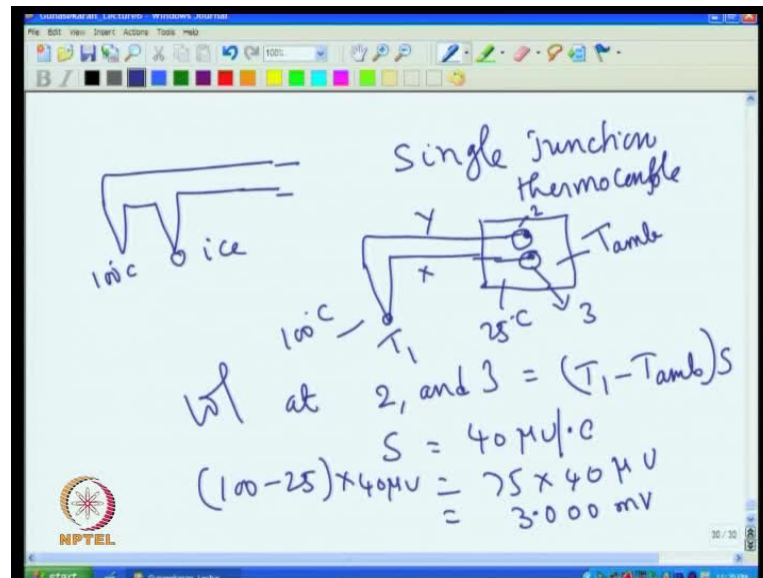 Gunasekaran_Lecture6 - Windows Journal
File Edit View Insert Actions Tools Help
100%
B I
Single Junction
thermocouple
100°C
ice
Y
2
Tamb
X
100°C
T1
25°C
3
Vol at 2, and 3 = (T1 - Tamb)S
S = 40 μV/°C
(100-25)×40μV = 75×40 μV
= 3.000 mV
NPTEL
30 / 30
start